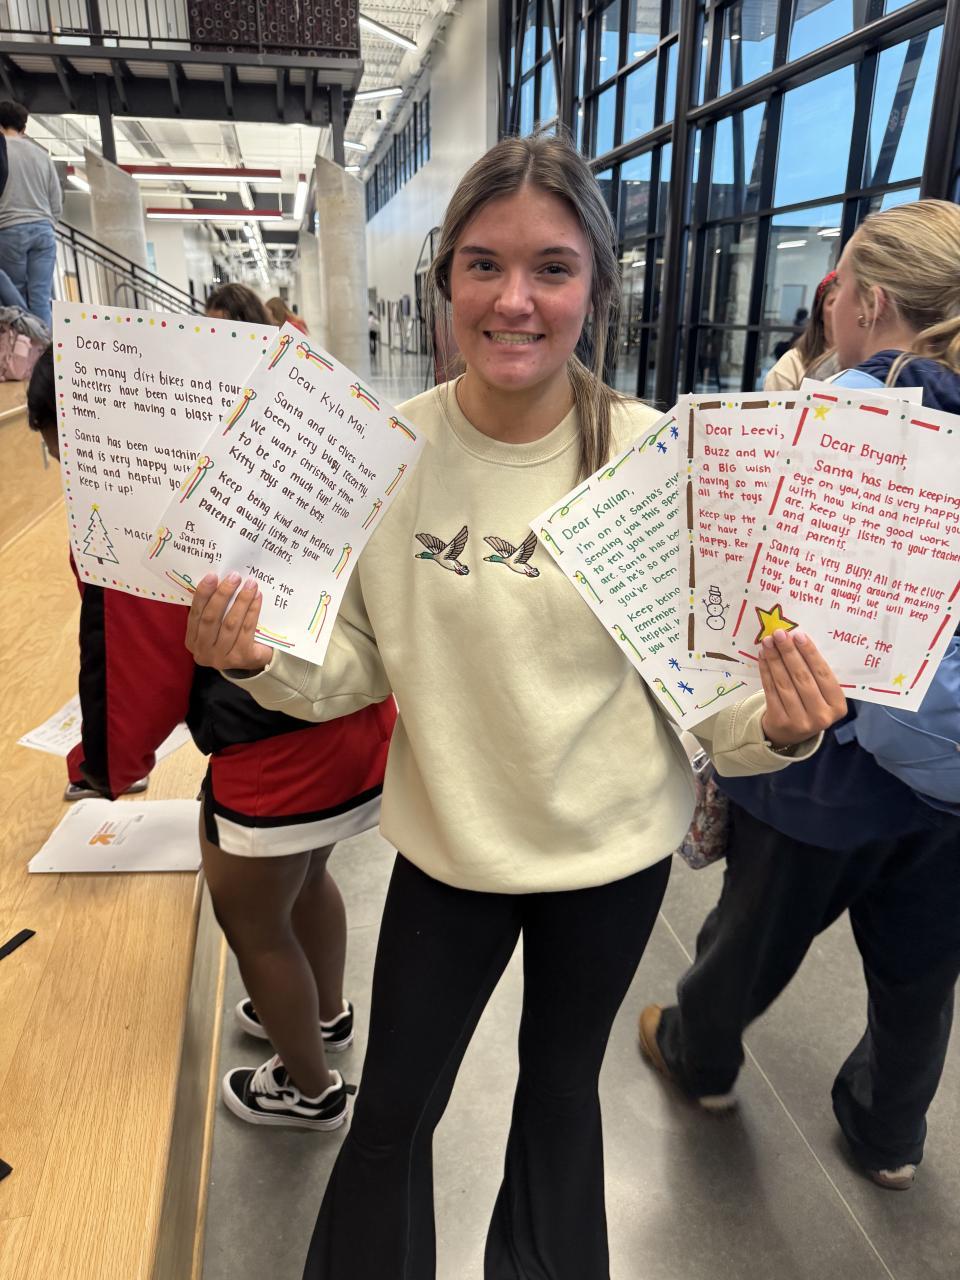 Dear Sam,
So many dirt bikes and four
wheelers have been wished
and we are having a blast
them.
Santa has been watching
and is very happy
kind and helpful
keep it up!
- Macie
Dear Kyla Mai,
Santa and us elves have
been very busy recently.
We want christmas time
to be so much fun! Hello
Kitty toys are the best.
Keep being kind and helpful
and always listen to your
parents and teachers.
-Macie, the
Elf
PS
Santa is
watching!!
Dear Kallan,
I'm on of santa's
sending you this
to tell you how
are. Santa has
and he's so
you've been
Keep being
remember
helpful.
you
Dear Leevi,
Buzz and
a BIG wish
having so
all the toys
Keep up the
we have
happy.
your
Dear Bryant,
Santa has been keeping
eye on you, and is very happy
with how kind and helpful you
are. Keep up the good work
and always listen to your teacher
and parents.
Santa is very BUSY! All of the elves
have been running around making
toys, but as always we will keep
your wishes in mind!
-Macie, the
Elf